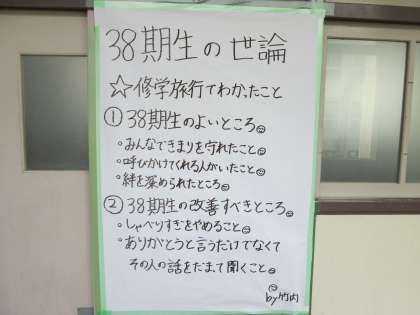 38期生の世論
☆修学旅行でわかったこと
① 38期生のよいところ。
。みんなできまりを守れたこと。
。呼びかけてくれる人がいたこと。
。絆を深められたところ。
② 38期生の改善すべきところ。
。しゃべりすぎをやめること。
。ありがとうと言うだけでなくて
その人の話をだまって聞くこと。
by竹内